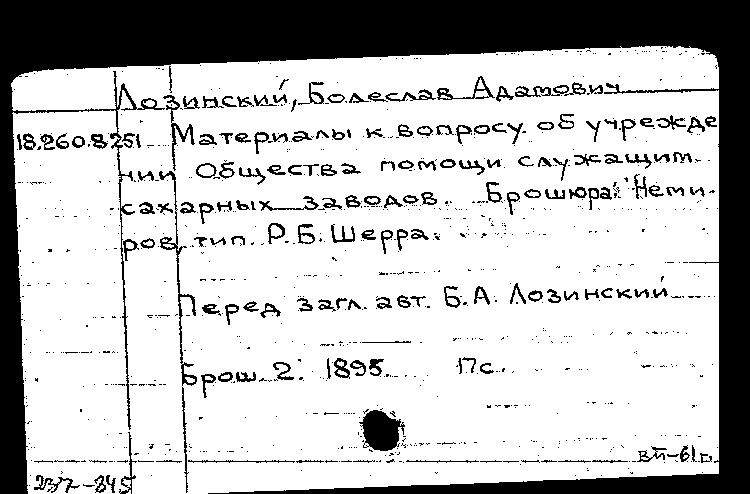 Лозинский, Болеслав Адамович
18.260.8.251 Материалы к вопросу об учрежде
нии Общества помощи служащим
сахарных заводов. Брошюра: Неми-
ров, тип. Р.Б. Шерра.
Перед загл. авт. Б.А. Лозинский
Брош. 2. 1895. 17с.
ВП-61г.
237--845